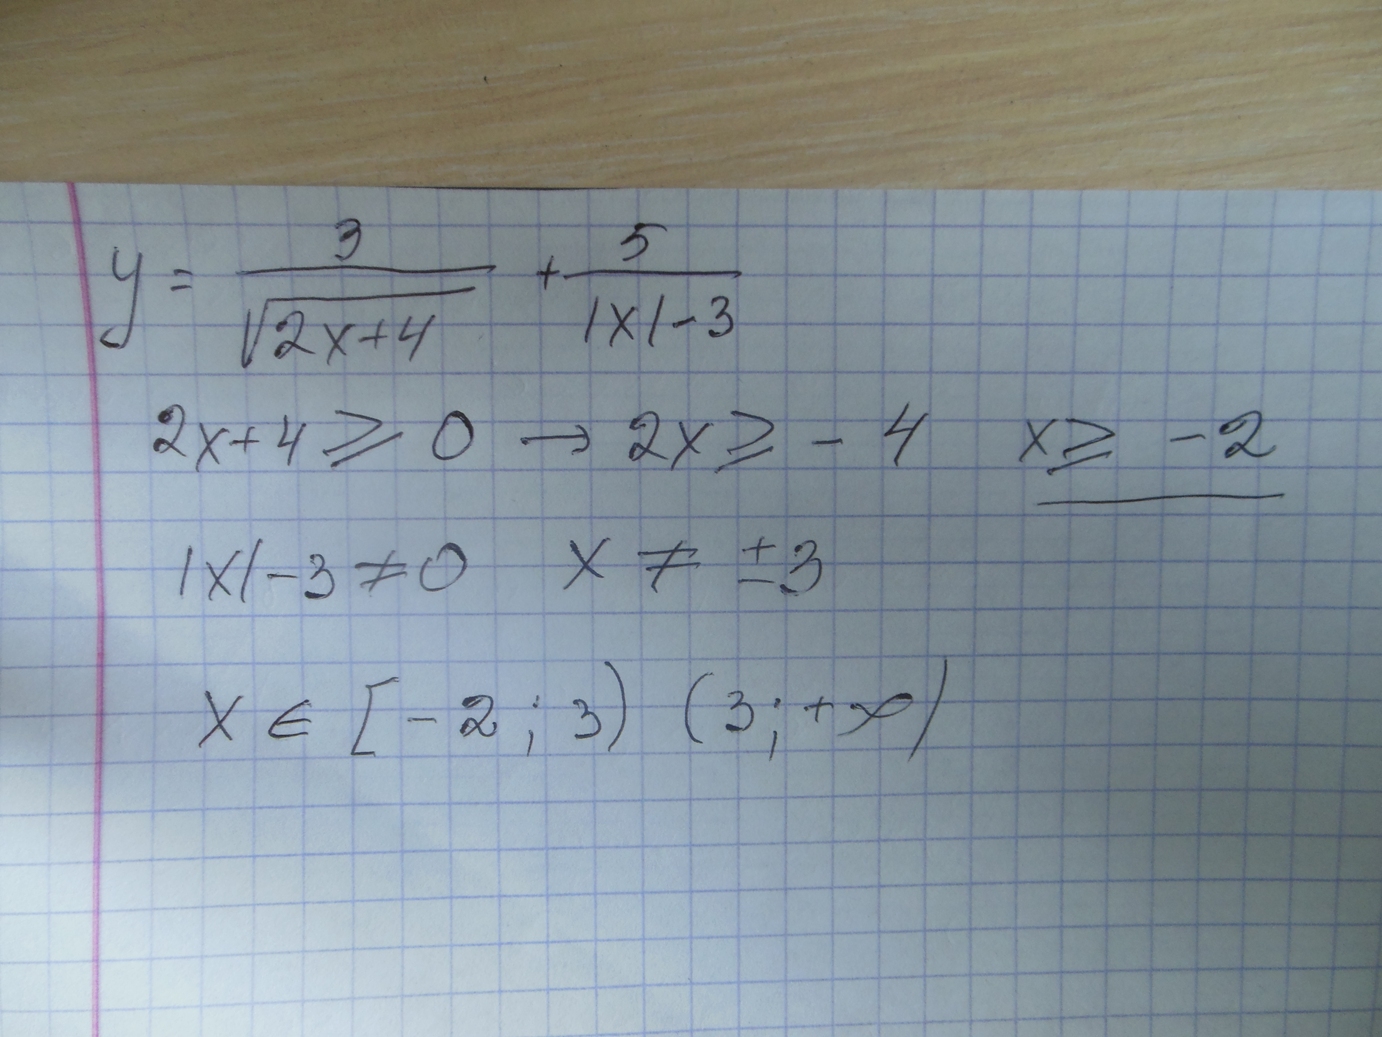 y = 3/√(2x+4) + 5/(|x|-3)
2x+4 ⩾ 0 → 2x ⩾ -4 x ⩾ -2
|x|-3 ≠ 0 x ≠ ±3
x ∈ [-2; 3) (3; +∞)